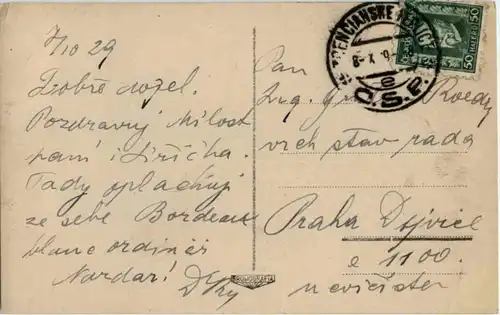 7/10 29
Dobře dojel.
Pozdravuj Milost
paní i Jiříčka.
Tady oplachuji
ze sebe Bordeau
blanc ordinér
Nazdar!
Pan
Ing. Roedy
vrch stav rada
Praha Dejvice
e 1100.
TRENCIANSKE TEPLICE
8-X
e
Č.S.P.
50 50